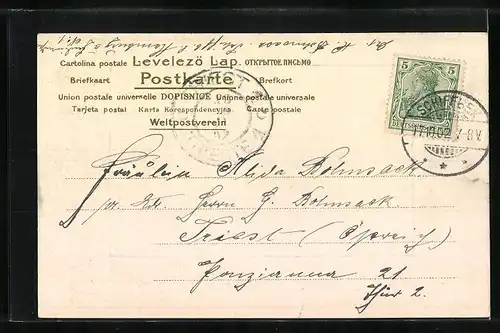 Cartolina postale Levelezö Lap. ОТКРЫТОЕ ПИСЬМО
Briefkaart Postkarte Brefkort
Union postale universelle DOPISNICE Unione postale universale
Tarjeta postal Karta Korespondencyjna Carte postale
Weltpostverein
5 5
SCHIFFBEK
17.11.02. 7-8V.
Fräulein Alida Böhmsack
pr. Ad. Herrn G. Böhmsack
Triest (Östreich)
Ponzianna 21
Thür 2.